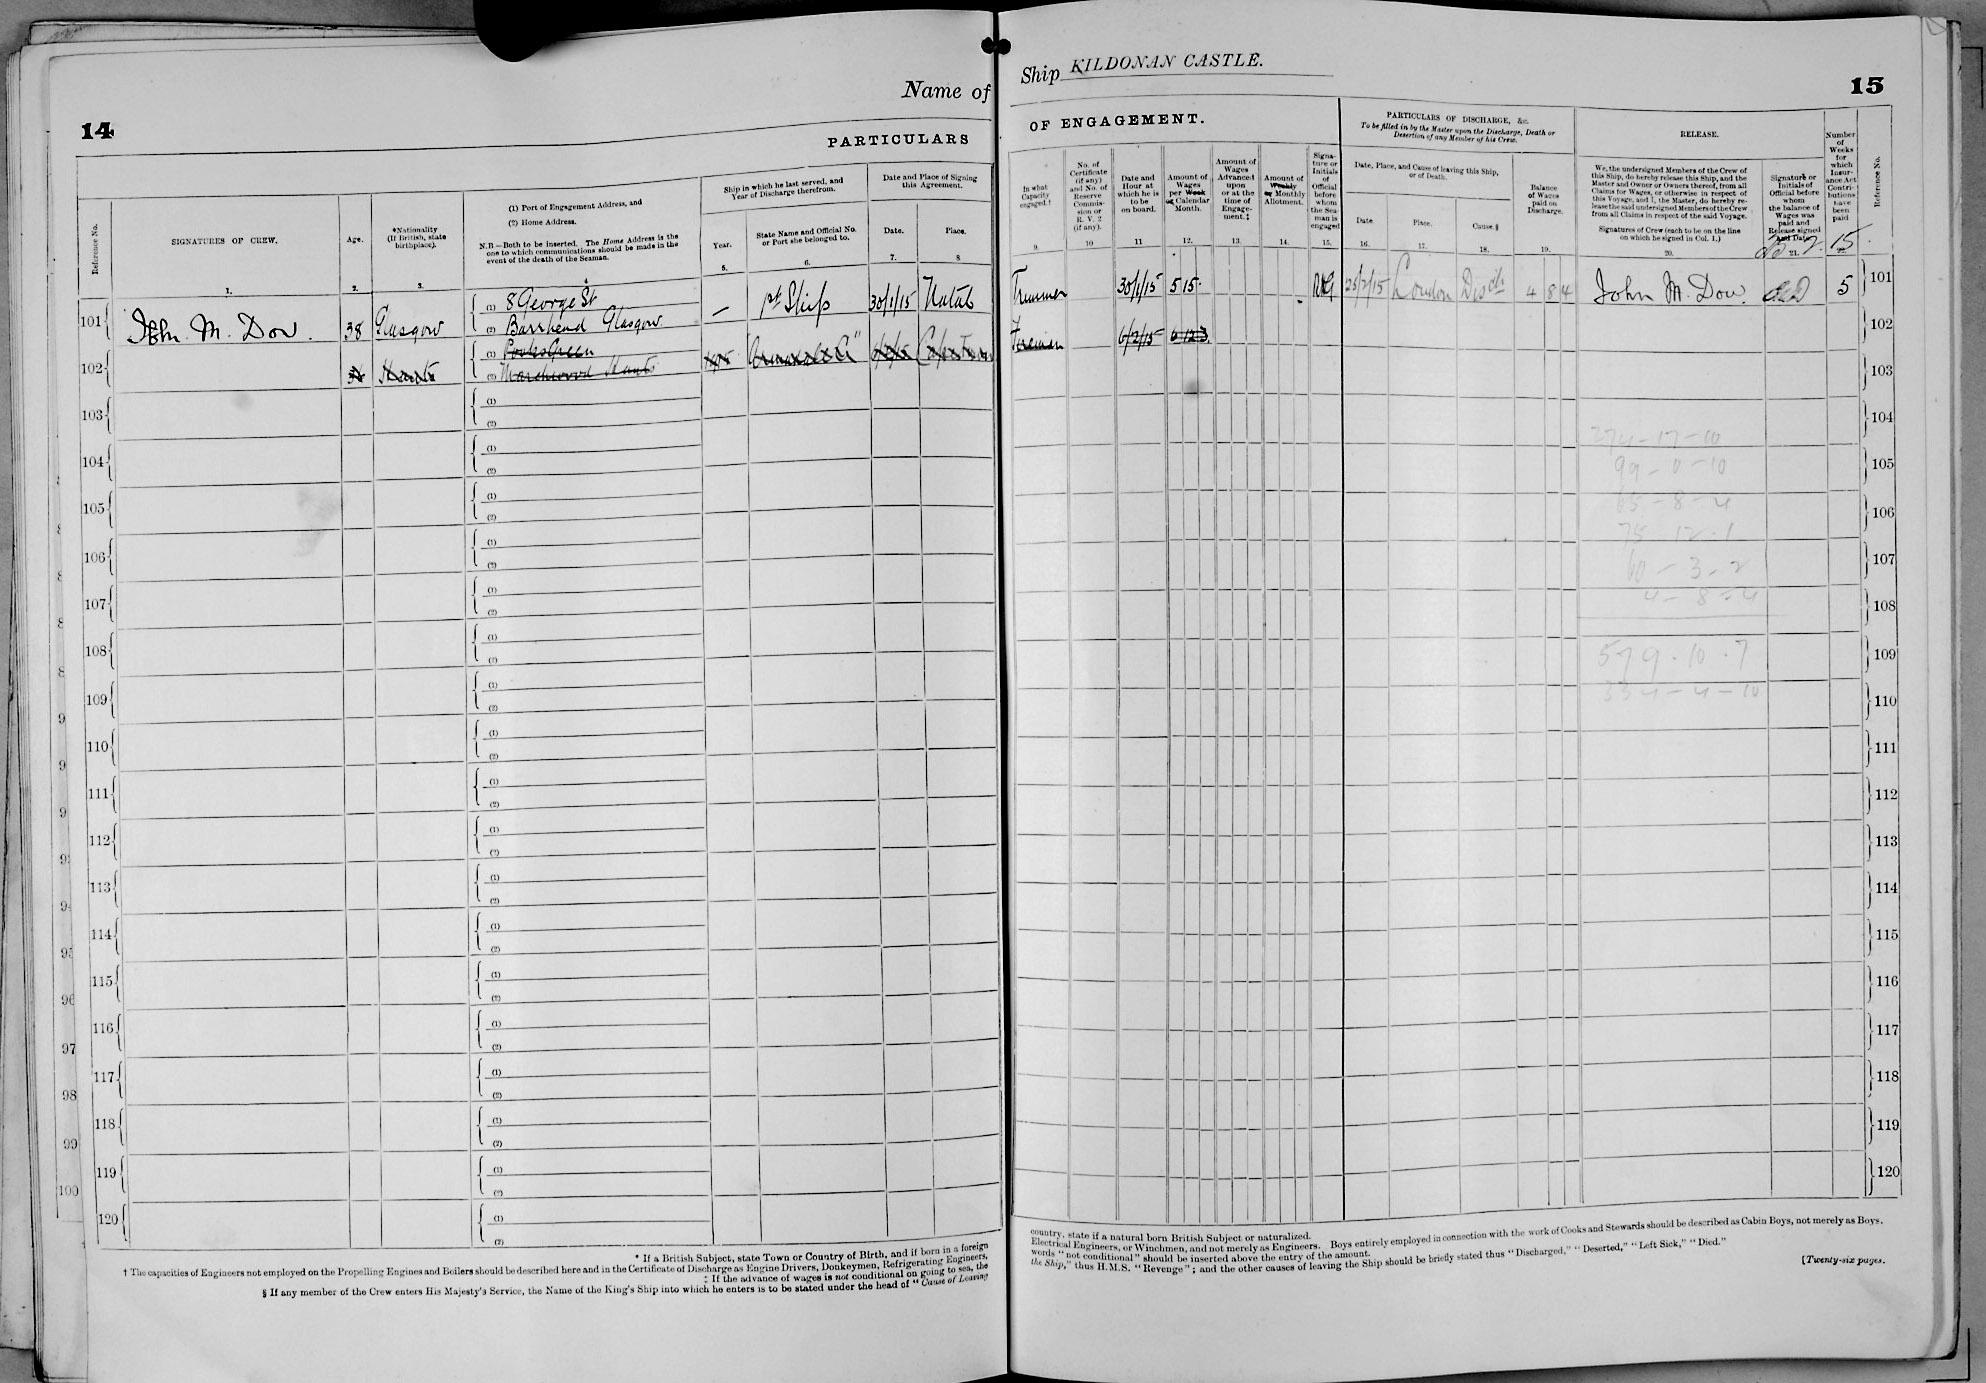 Name of
Ship KILDONAN CASTLE.
14
15
PARTICULARS
OF ENGAGEMENT.
PARTICULARS OF DISCHARGE, &c.
To be filled in by the Master upon the Discharge, Death or
Desertion of any Member of his Crew.
RELEASE.
Reference No.
SIGNATURES OF CREW.
1.
Age.
2.
*Nationality
(If British, state
birthplace).
3.
(1) Port of Engagement Address, and
(2) Home Address.
N.B.—Both to be inserted. The Home Address is the
one to which communications should be made in the
event of the death of the Seaman.
4
Ship in which he last served, and
Year of Discharge therefrom.
Year.
5.
State Name and Official No.
or Port she belonged to.
6.
Date and Place of Signing
this Agreement.
Date.
7.
Place.
8
In what
Capacity
engaged.†
9.
No. of
Certificate
(if any)
and No. of
Reserve
Commis-
sion or
R. V. 2
(if any).
10
Date and
Hour at
which he is
to be
on board.
11
Amount of
Wages
per Week
or Calendar
Month.
12.
Amount of
Wages
Advanced
upon
or at the
time of
Engage-
ment.‡
13.
Amount of
Weekly
or Monthly
Allotment.
14.
Signa-
ture or
Initials
of
Official
before
whom
the Sea-
man is
engaged
15.
Date, Place, and Cause of leaving this Ship,
or of Death.
Date.
16.
Place.
17.
Cause.§
18.
Balance
of Wages
paid on
Discharge.
19.
We, the undersigned Members of the Crew of
this Ship, do hereby release this Ship, and the
Master and Owner or Owners thereof, from all
Claims for Wages, or otherwise in respect of
this Voyage, and I, the Master, do hereby re-
lease the said undersigned Members of the Crew
from all Claims in respect of the said Voyage.
Signatures of Crew (each to be on the line
on which he signed in Col. 1.)
20.
Signature or
Initials of
Official before
whom
the balance of
Wages was
paid and
Release signed
And Date
21.
Number
of
Weeks
for
which
Insur-
ance Act
Contri-
butions
have
been
paid
Reference No.
101 John. M. Dow. 38 Glasgow (1) 8 George St
(2) Barrhead Glasgow — 1st Ship 30/1/15 Natal Trimmer 30/1/15 5 15 25/2/15 London Disch 4 8 4 John M. Dow. 5 101
102 Hants (1) Pooks Green
(2) Marchwood Hants Capetown Fireman 6/2/15 6 12 3 102
103 (1) (2) 103
104 (1) (2) 104
105 (1) (2) 105
106 (1) (2) 106
107 (1) (2) 107
108 (1) (2) 108
109 (1) (2) 109
110 (1) (2) 110
111 (1) (2) 111
112 (1) (2) 112
113 (1) (2) 113
114 (1) (2) 114
115 (1) (2) 115
116 (1) (2) 116
117 (1) (2) 117
118 (1) (2) 118
119 (1) (2) 119
120 (1) (2) 120
274-17-10
99-0-10
65-8-4
75-12.1
60-3-2
4-8-4
579.10.7
334-4-10
* If a British Subject, state Town or Country of Birth, and if born in a foreign
† The capacities of Engineers not employed on the Propelling Engines and Boilers should be described here and in the Certificate of Discharge as Engine Drivers, Donkeymen, Refrigerating Engineers,
‡ If the advance of wages is not conditional on going to sea, the
§ If any member of the Crew enters His Majesty's Service, the Name of the King's Ship into which he enters is to be stated under the head of "Cause of Leaving
country, state if a natural born British Subject or naturalized.
Electrical Engineers, or Winchmen, and not merely as Engineers. Boys entirely employed in connection with the work of Cooks and Stewards should be described as Cabin Boys, not merely as Boys.
words "not conditional" should be inserted above the entry of the amount.
the Ship," thus H.M.S. "Revenge"; and the other causes of leaving the Ship should be briefly stated thus "Discharged," "Deserted," "Left Sick," "Died."
[Twenty-six pages.
97
98
99
100